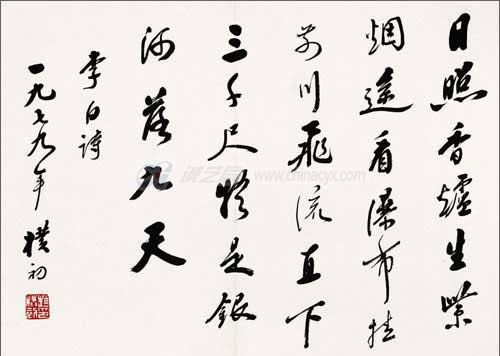 日照香爐生紫
烟遥看瀑布挂
前川飛流直下
三千尺疑是銀
河落九天
李白詩
一九七九年 樸初
诚艺信 www.chinacyx.com